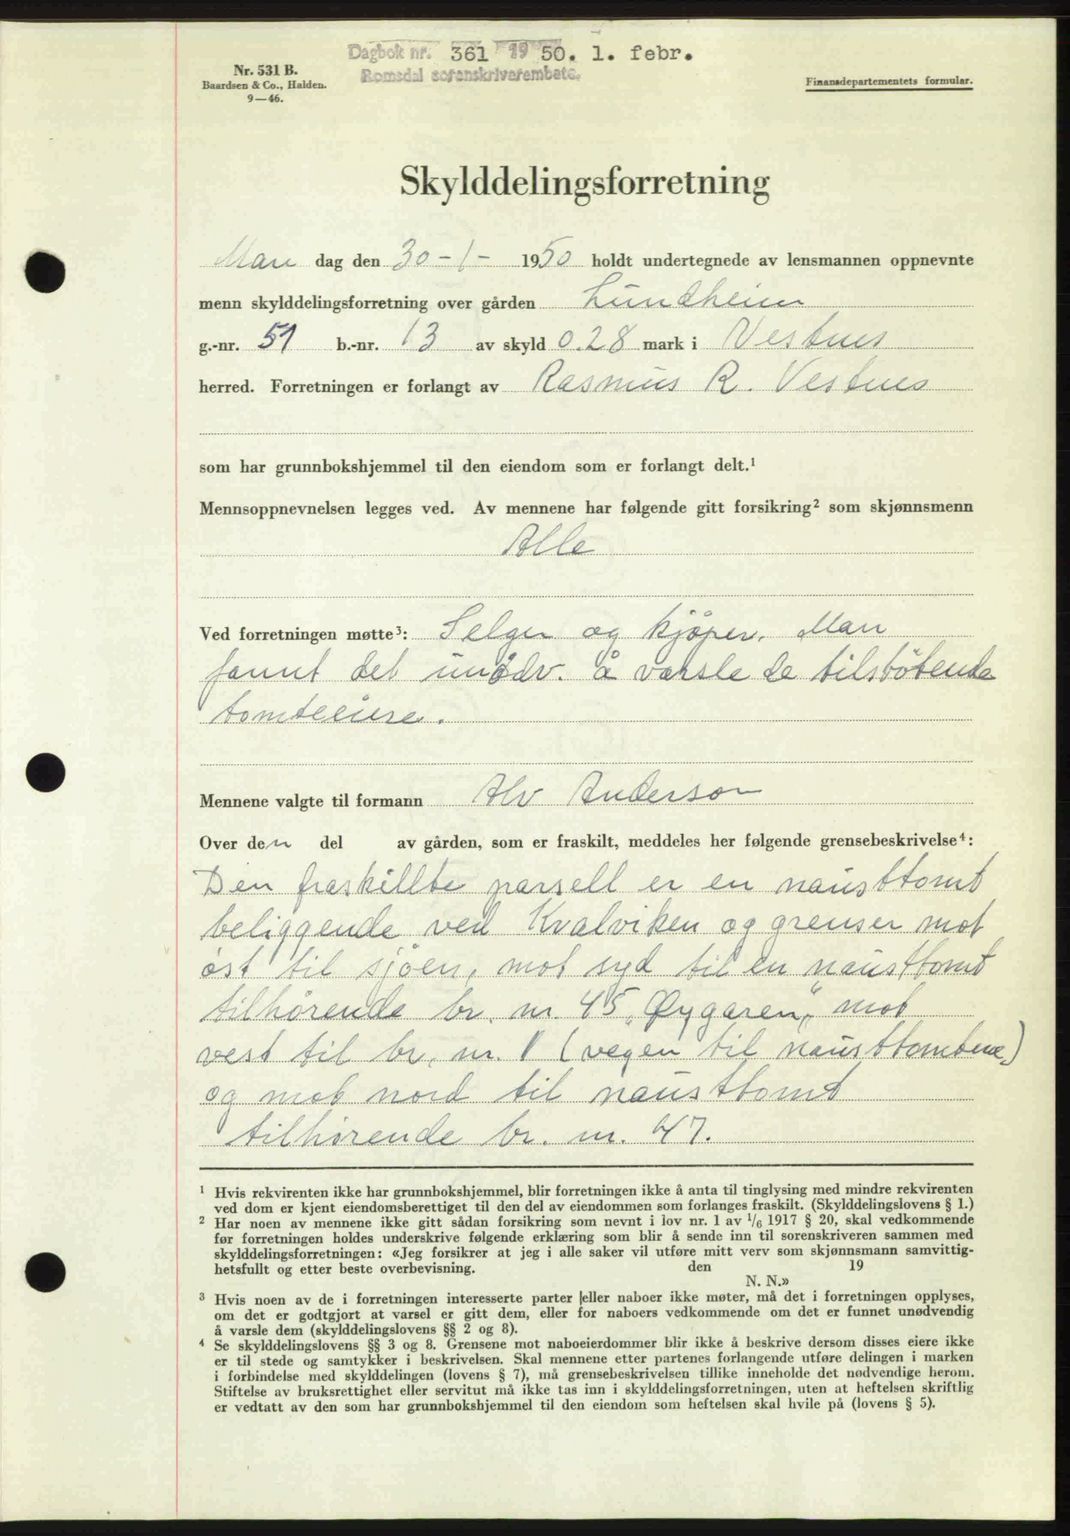 Dagbok nr. 361 1950. 1. febr.
Romsdal sorenskriverembete.
Nr. 531 B.
Baardsen & Co., Halden.
9—46.
Finansdepartementets formular.
Skylddelingsforretning
Man dag den 30-1- 1950 holdt undertegnede av lensmannen oppnevnte
menn skylddelingsforretning over gården Lundheim
g.-nr. 51 b.-nr. 13 av skyld 0.28 mark i Vestnes
herred. Forretningen er forlangt av Rasmus R. Vestnes
som har grunnbokshjemmel til den eiendom som er forlangt delt.¹
Mennsoppnevnelsen legges ved. Av mennene har følgende gitt forsikring² som skjønnsmenn
Alle
Ved forretningen møtte³: Selger og kjøper. Man
fannt det unødv. å varsle de tilstøtende
tomteeiere.
Mennene valgte til formann Alv Anderson
Over den del av gården, som er fraskilt, meddeles her følgende grensebeskrivelse⁴:
Den fraskillte parsell er en nausttomt
beliggende ved Kvalviken og grenser mot
øst til sjøen, mot syd til en nausttomt
tilhørende br. nr. 45 „Øygaren", mot
vest til br. nr. 1 (vegen til nausttomtene)
og mot nord til nausttomt
tilhørende br. nr. 47.
¹ Hvis rekvirenten ikke har grunnbokshjemmel, blir forretningen ikke å anta til tinglysing med mindre rekvirenten
ved dom er kjent eiendomsberettiget til den del av eiendommen som forlanges fraskilt. (Skylddelingslovens § 1.)
² Har noen av mennene ikke gitt sådan forsikring som nevnt i lov nr. 1 av 1/6 1917 § 20, skal vedkommende
før forretningen holdes underskrive følgende erklæring som blir å sende inn til sorenskriveren sammen med
skylddelingsforretningen: «Jeg forsikrer at jeg i alle saker vil utføre mitt verv som skjønnsmann samvittig-
hetsfullt og etter beste overbevisning. den 19
N. N.»
³ Hvis noen av de i forretningen interesserte parter eller naboer ikke møter, må det i forretningen opplyses,
om det er godtgjort at varsel er gitt dem, eller for naboers vedkommende om det er funnet unødvendig
å varsle dem (skylddelingslovens §§ 2 og 8).
⁴ Se skylddelingslovens §§ 3 og 8. Grensene mot naboeierdommer blir ikke å beskrive dersom disses eiere ikke
er til stede og samtykker i beskrivelsen. Skal mennene etter partenes forlangende utføre delingen i marken
i forbindelse med skylddelingen (lovens § 7), må grensebeskrivelsen tillike inneholde det nødvendige herom.
Stiftelse av bruksrettighet eller servitut må ikke tas inn i skylddelingsforretningen, uten at heftelsen skriftlig
er vedtatt av den som har grunnbokshjemmel til den eiendom som heftelsen skal hvile på (lovens § 5).